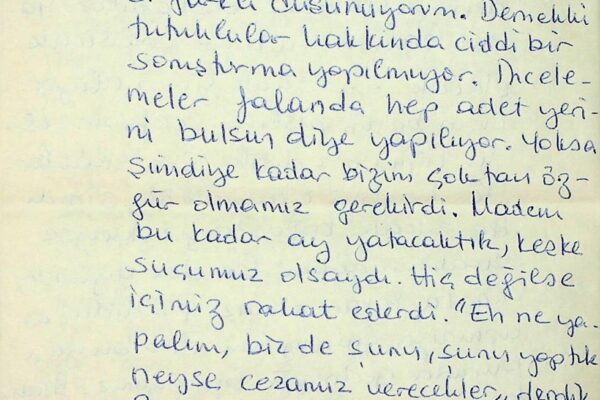 düşünüyorum. Demekki
tutuklular hakkında ciddi bir
soruşturma yapılmıyor. İncele-
meler falanda hep adet yeri-
ni bulsun diye yapılıyor. Yoksa
şimdiye kadar bizim çoktan öz-
gür olmamız gerekirdi. Madem
bu kadar ay yatacaktık, keşke
suçumuz olsaydı. Hiç değilse
içimiz rahat ederdi. "Eh ne ya-
palım, biz de şunu, şunu yaptık
neyse cezamız verecekler," derdik